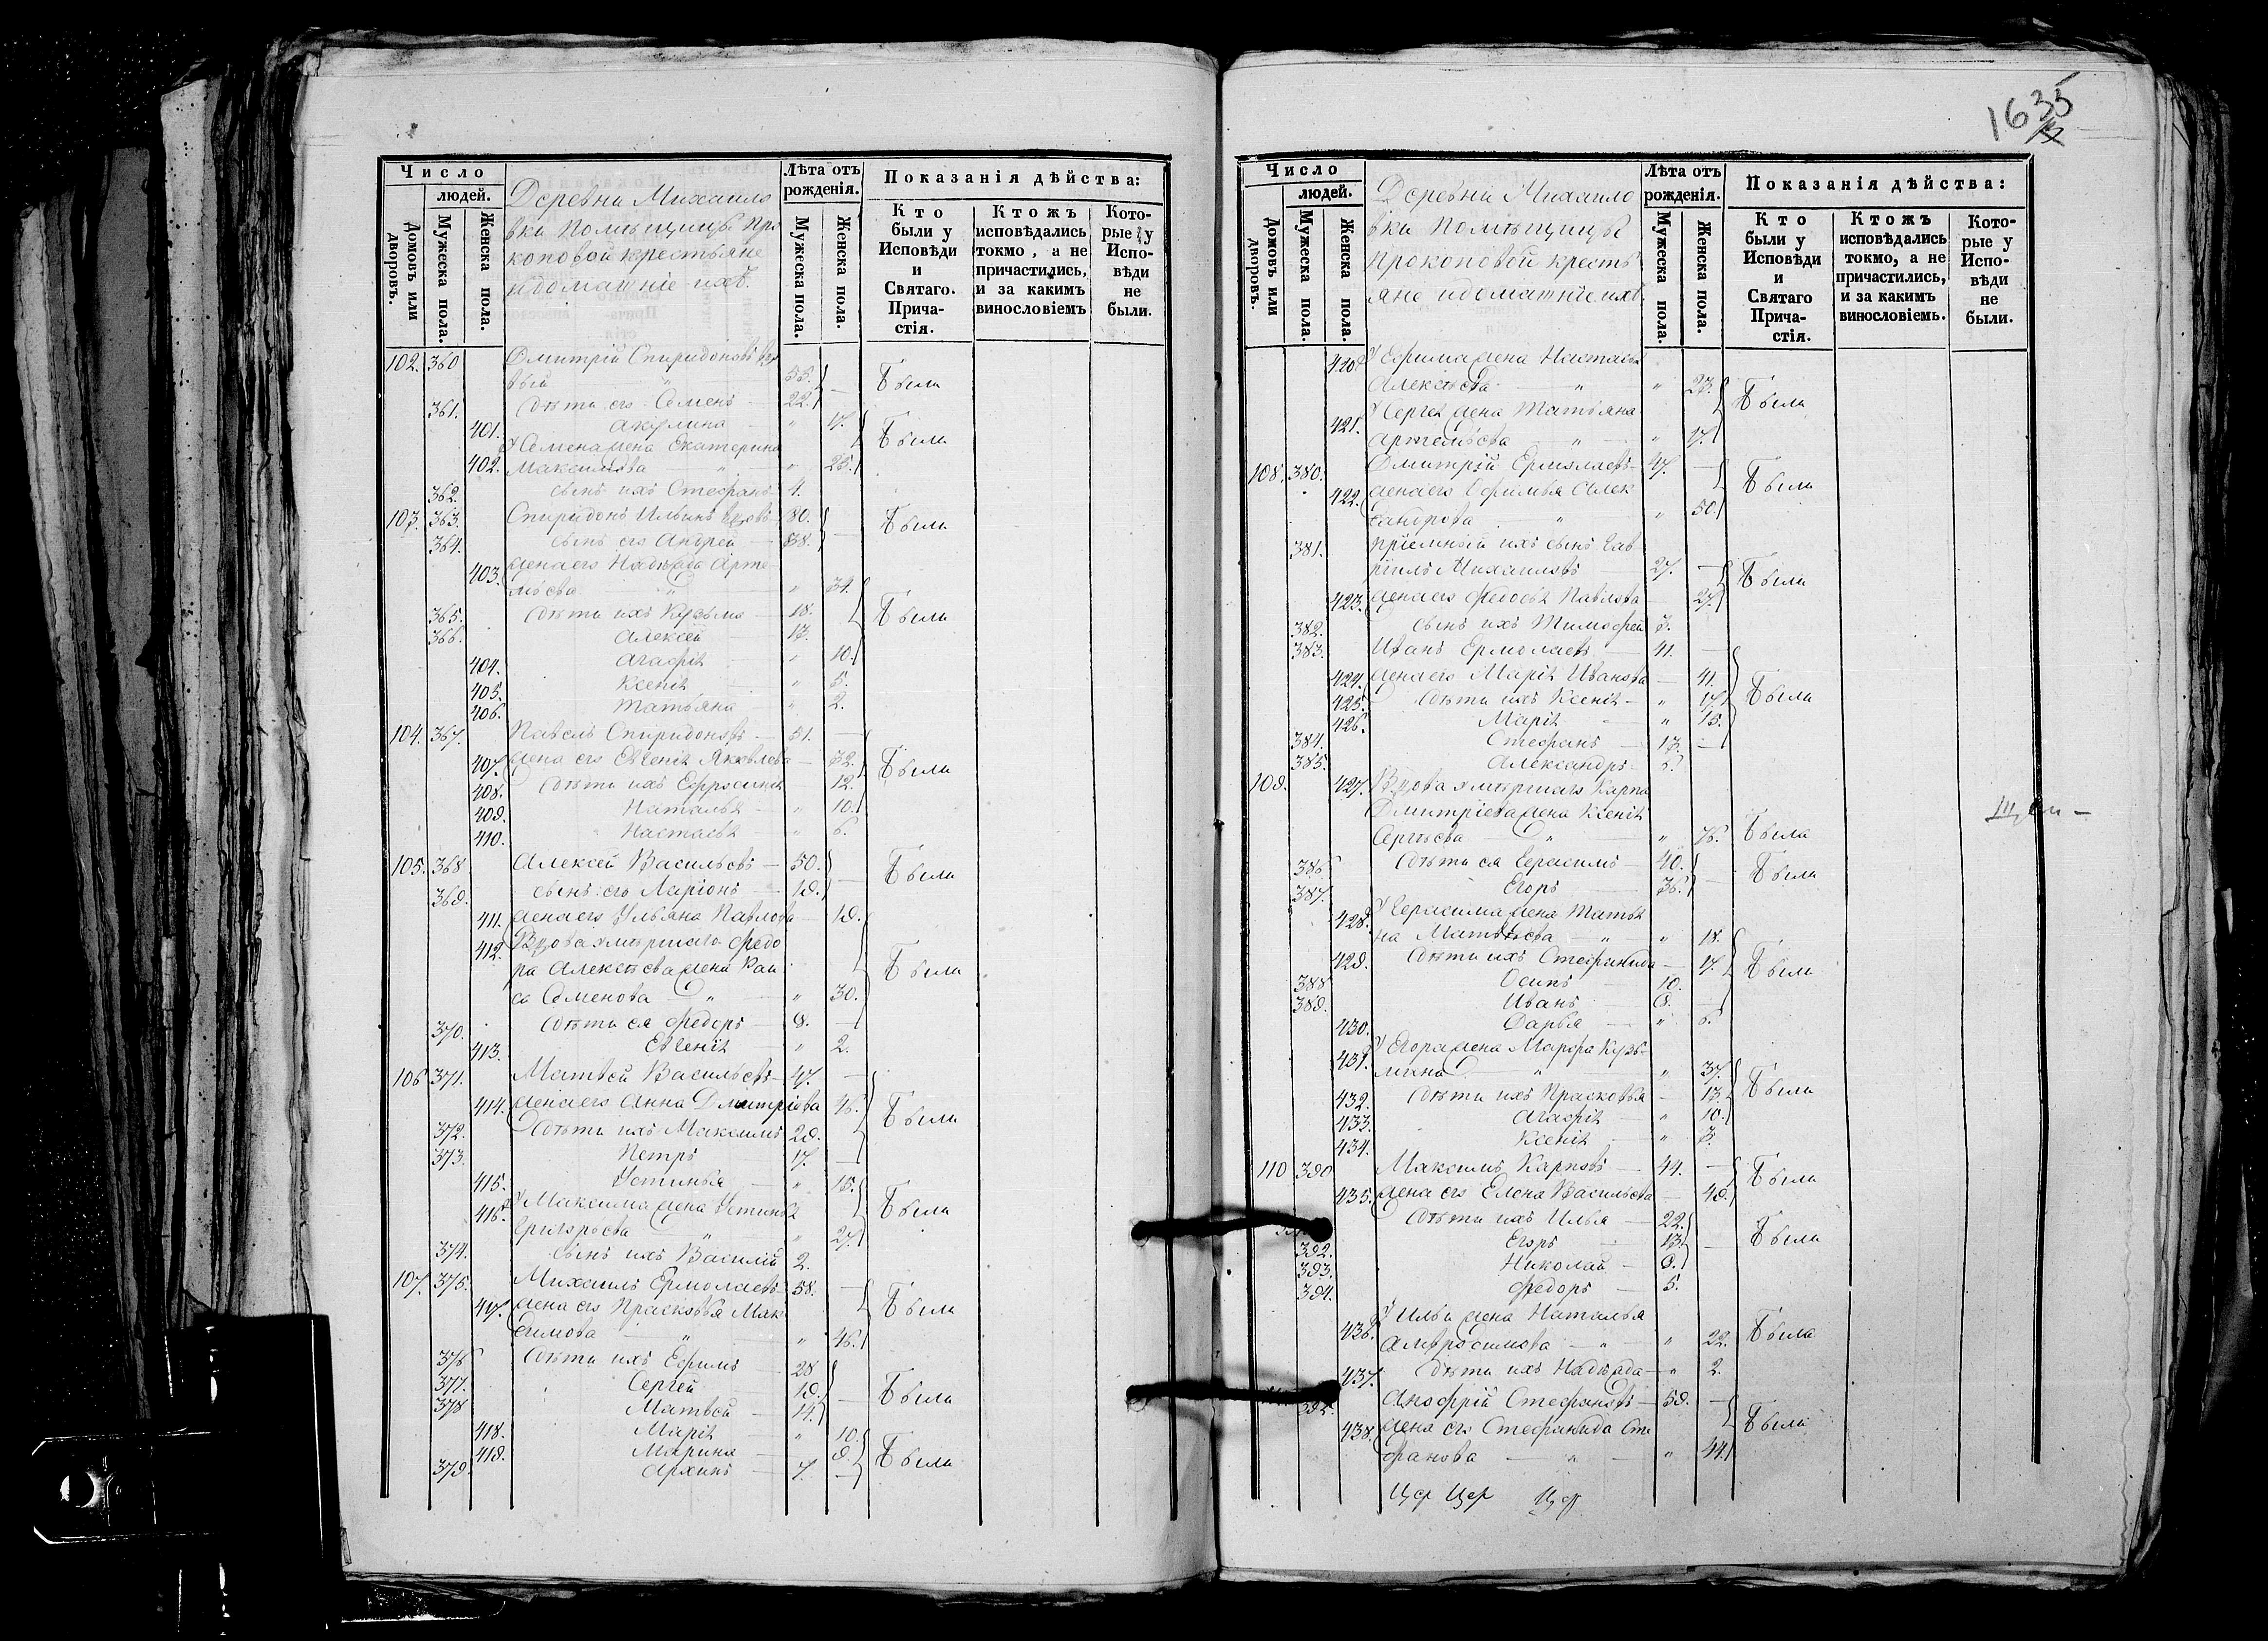 1635
Число
людей.
Домовъ или дворовъ.
Мужеска пола.
Женска пола.
Деревни Михайло
вки Помѣщицы Про
коповой крестьяне
и домашніе ихъ.
Лѣта отъ рожденія.
Мужеска пола.
Женска пола.
Показанія дѣйства:
Кто были у Исповѣди и Святаго. Прича- стія.
Ктожъ исповѣдались токмо, а не причастились, и за какимъ винословіемъ
Кото- рые у Испо- вѣди не были.
102. 360 Дмитрій Спиридоновъ
55. Были
361. Дѣти его Семенъ 22.
401. Акулина " 17. Были
У Семена жена Екатерина
402. Максимова " " 25.
362. сынъ ихъ Стефанъ 4.
103. 363. Спиридонъ Ильинъ вдовъ 80. Были
364. сынъ его Андрей 38.
403. жена его Надежда Арте-
мьева " " 34.
365. Дѣти ихъ Кузьма 18. Были
366. Алексей 13.
404. Агафія " 10.
405. Ксенія " 5.
406. Татьяна " 2.
104. 367. Павелъ Спиридоновъ 51.
407. жена его Евгенія Яковлева 32. Были
408. Дѣти ихъ Ефросинія 12.
409. Наталья " 10.
410. Настасья " 6.
105. 368 Алексей Васильевъ 50. Были
369. сынъ его Ларіонъ 19.
411. жена его Ульяна Павлова 19.
412. Вдова умершаго Федо
ра Алексѣева жена Раи Были
са Семенова " " 30.
370. Дѣти ея Федоръ 8.
413. Евгенія " 2.
106 371. Матвей Васильевъ 47.
414. жена его Анна Дмитріева 46. Были
372. Дѣти ихъ Максимъ 29.
373. Петръ 17.
415. Устинья " 15.
416. У Максима жена Устинья Были
Григорьева " " 27.
374. сынъ ихъ Василій 2.
107. 375. Михаилъ Ермолаевъ 58.
417. жена его Прасковья Мак Были
симова " " 46.
376 Дѣти ихъ Ефимъ 28
377. Сергей 19. Были
378 Матвей 14.
418. Марія " 10.
419. Марина 9. Были
379. Архипъ 7.
Число
людей.
Домовъ или дворовъ.
Мужеска пола.
Женска пола.
Деревни Михайло
вки Помѣщицы
Прокоповой кресть
яне и домашніе ихъ.
Лѣта отъ рожденія.
Мужеска пола.
Женска пола.
Показанія дѣйства:
Кто были у Исповѣди и Святаго Прича- стія.
Ктожъ исповѣдались токмо, а не причастились, и за какимъ винословіемъ.
Кото- рые у Испо- вѣди не были.
420. У Ефима жена Настасья
Алексѣева " " 23. Были
421. У Сергея жена Татьяна
Артемьева " " 17.
108. 380. Дмитрій Ермолаевъ 47. Были
422. жена его Ефимья Алек
сандрова " " 50.
381. Пріемный ихъ сынъ Гав
рилъ Михайловъ 27. Были
423. жена его Федосія Павлова 27.
382. сынъ ихъ Тимофей 3.
383. Иванъ Ермолаевъ 41.
424. жена его Марія Иванова 41. Были
425. Дѣти ихъ Ксенія " 17.
426. Марія " 15.
384. Стефанъ 13.
385. Александръ 6.
109. 427. Вдова умершаго Карпа
Дмитріева жена Ксенія
Сергѣева " " 76. Была
386 Дѣти ея Герасимъ 40. Были
387. Егоръ 36.
428. У Герасима жена Татья
на Матвѣева " " 18.
429. Дѣти ихъ Стефанида 17. Были
388 Осипъ 10.
389. Иванъ 8.
430. Дарья " 6.
431. У Егора жена Марфа Кузь-
мина " " 37. Были
432. Дѣти ихъ Прасковья 13.
433. Агафія " 10.
434. Ксенія " 3.
110 390 Максимъ Карповъ 44. Были
435. жена его Елена Васильева 49.
Дѣти ихъ Илья 22.
392. Егоръ 13. Были
393. Николай 9.
394. Федоръ 5.
436. У Ильи жена Наталья Была
Амвросимова " " 22.
437. Дѣти ихъ Надежда " 2.
Анофрій Стефановъ 59.
438. жена его Стефанида Сте Были
фанова " " 44.